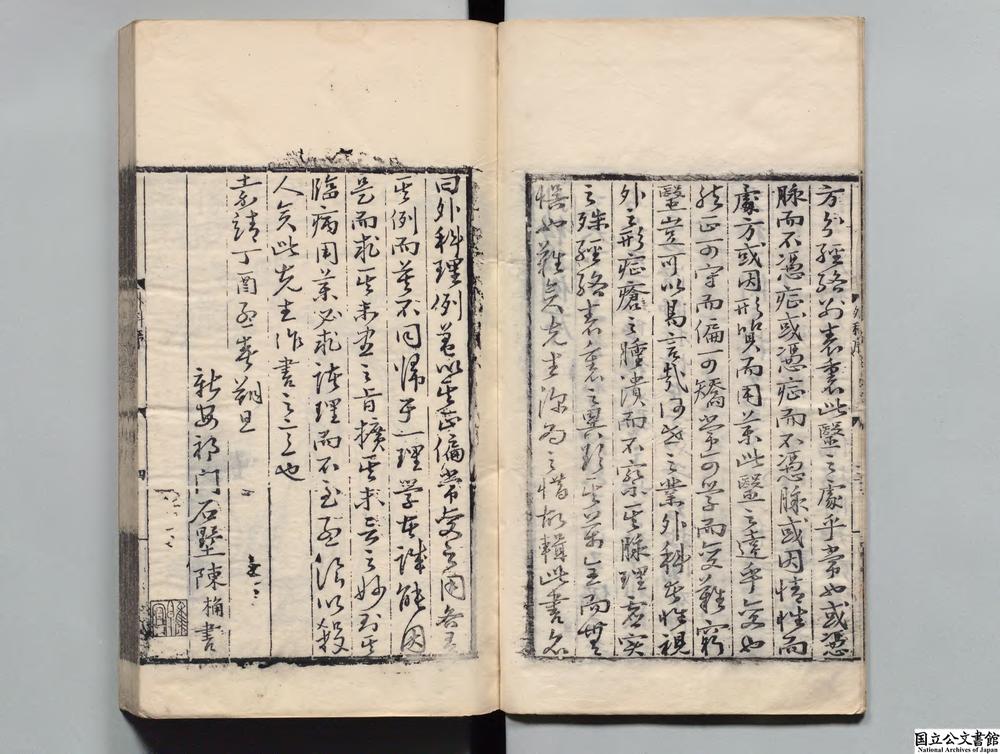 方分經絡別表裏此醫之處乎常也或憑
脉而不憑症或憑症而不憑脉或因情性而
處方或因形質而用藥此醫之達乎變也
然正可守而偏可矯常可學而變難窮
醫豈可以易言哉何世之業外科者惟視
外之形症瘡之腫潰而不察其脉理虛實
之殊經絡表裏之異欲其萬全而無
惧也難矣先生深為之惜故輯此書名
曰外科理例蓋以其正偏常變之用各有
其例而莫不同歸于一理學者誠能因
是而求其未盡之旨擴其未言之妙則其
臨病用藥必求諸理而不至孟浪以殺
人矣此先生作書之意也
嘉靖丁酉孟春朔旦
新安祁門石墅陳桷書
国立公文書館
National Archives of Japan